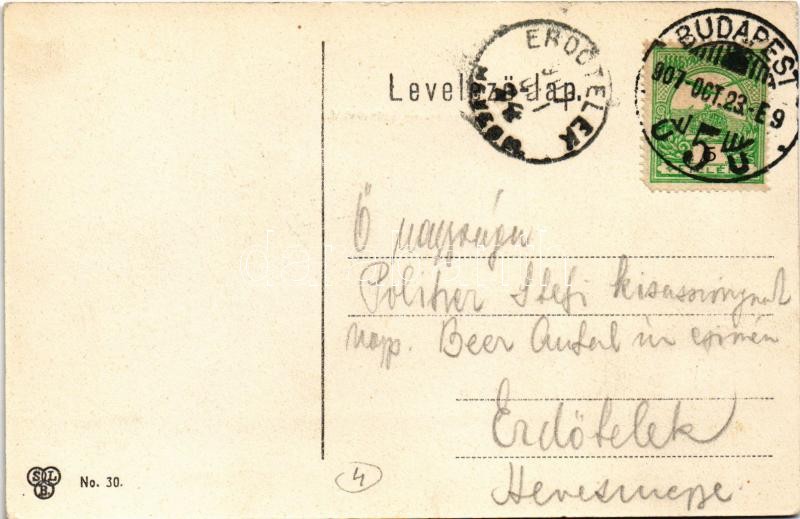 Levelező-Lap.
ERDŐTELEK
BUDAPEST
907-OCT.23-E9
5
Ő nagysága
Politzer Stefi kisasszonynak
nagys. Beer Antal úr címén
Erdőtelek
Hevesmegye
SLB. No. 30.
4